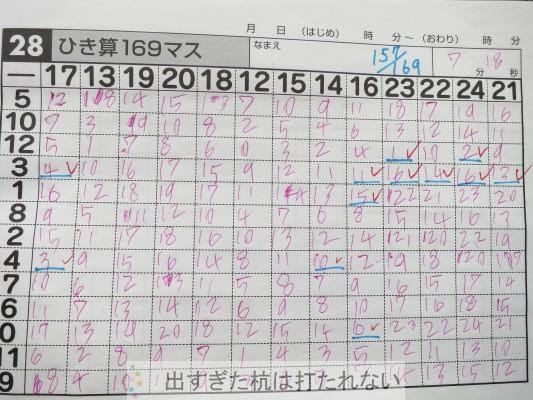 月 日 (はじめ) 時 分〜(おわり) 時 分
28 ひき算169マス なまえ 157/169 7分 18秒
― 17 13 19 20 18 12 15 14 16 23 22 24 21
5 12 18 14 15 13 7 10 9 11 18 17 19 16
10 7 3 19 10 8 2 5 4 6 13 12 14 11
12 5 1 7 8 6 0 3 2 4 1 10 2 9
3 4 10 16 17 15 9 12 11 11 16 14 16 13
1 16 12 18 19 17 11 13 15 22 21 23 20
8 9 5 11 12 10 4 7 6 8 15 14 16 13
2 15 11 17 18 16 10 13 12 14 21 20 22 19
4 3 9 15 16 14 8 11 12 19 18 20 17
7 10 6 12 13 11 5 8 7 9 16 15 17 14
6 11 7 13 14 12 6 9 8 10 17 16 18 15
0 17 13 19 20 18 12 15 14 23 22 24 21
11 6 2 8 9 7 1 4 3 5 12 11 13 10
9 8 4 10 14 13 15 12
出すぎた杭は打たれない